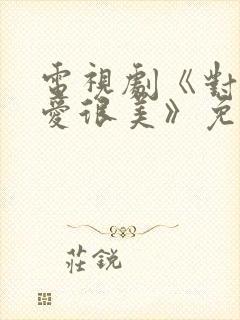 電視劇《對
愛很美》免
莊銳